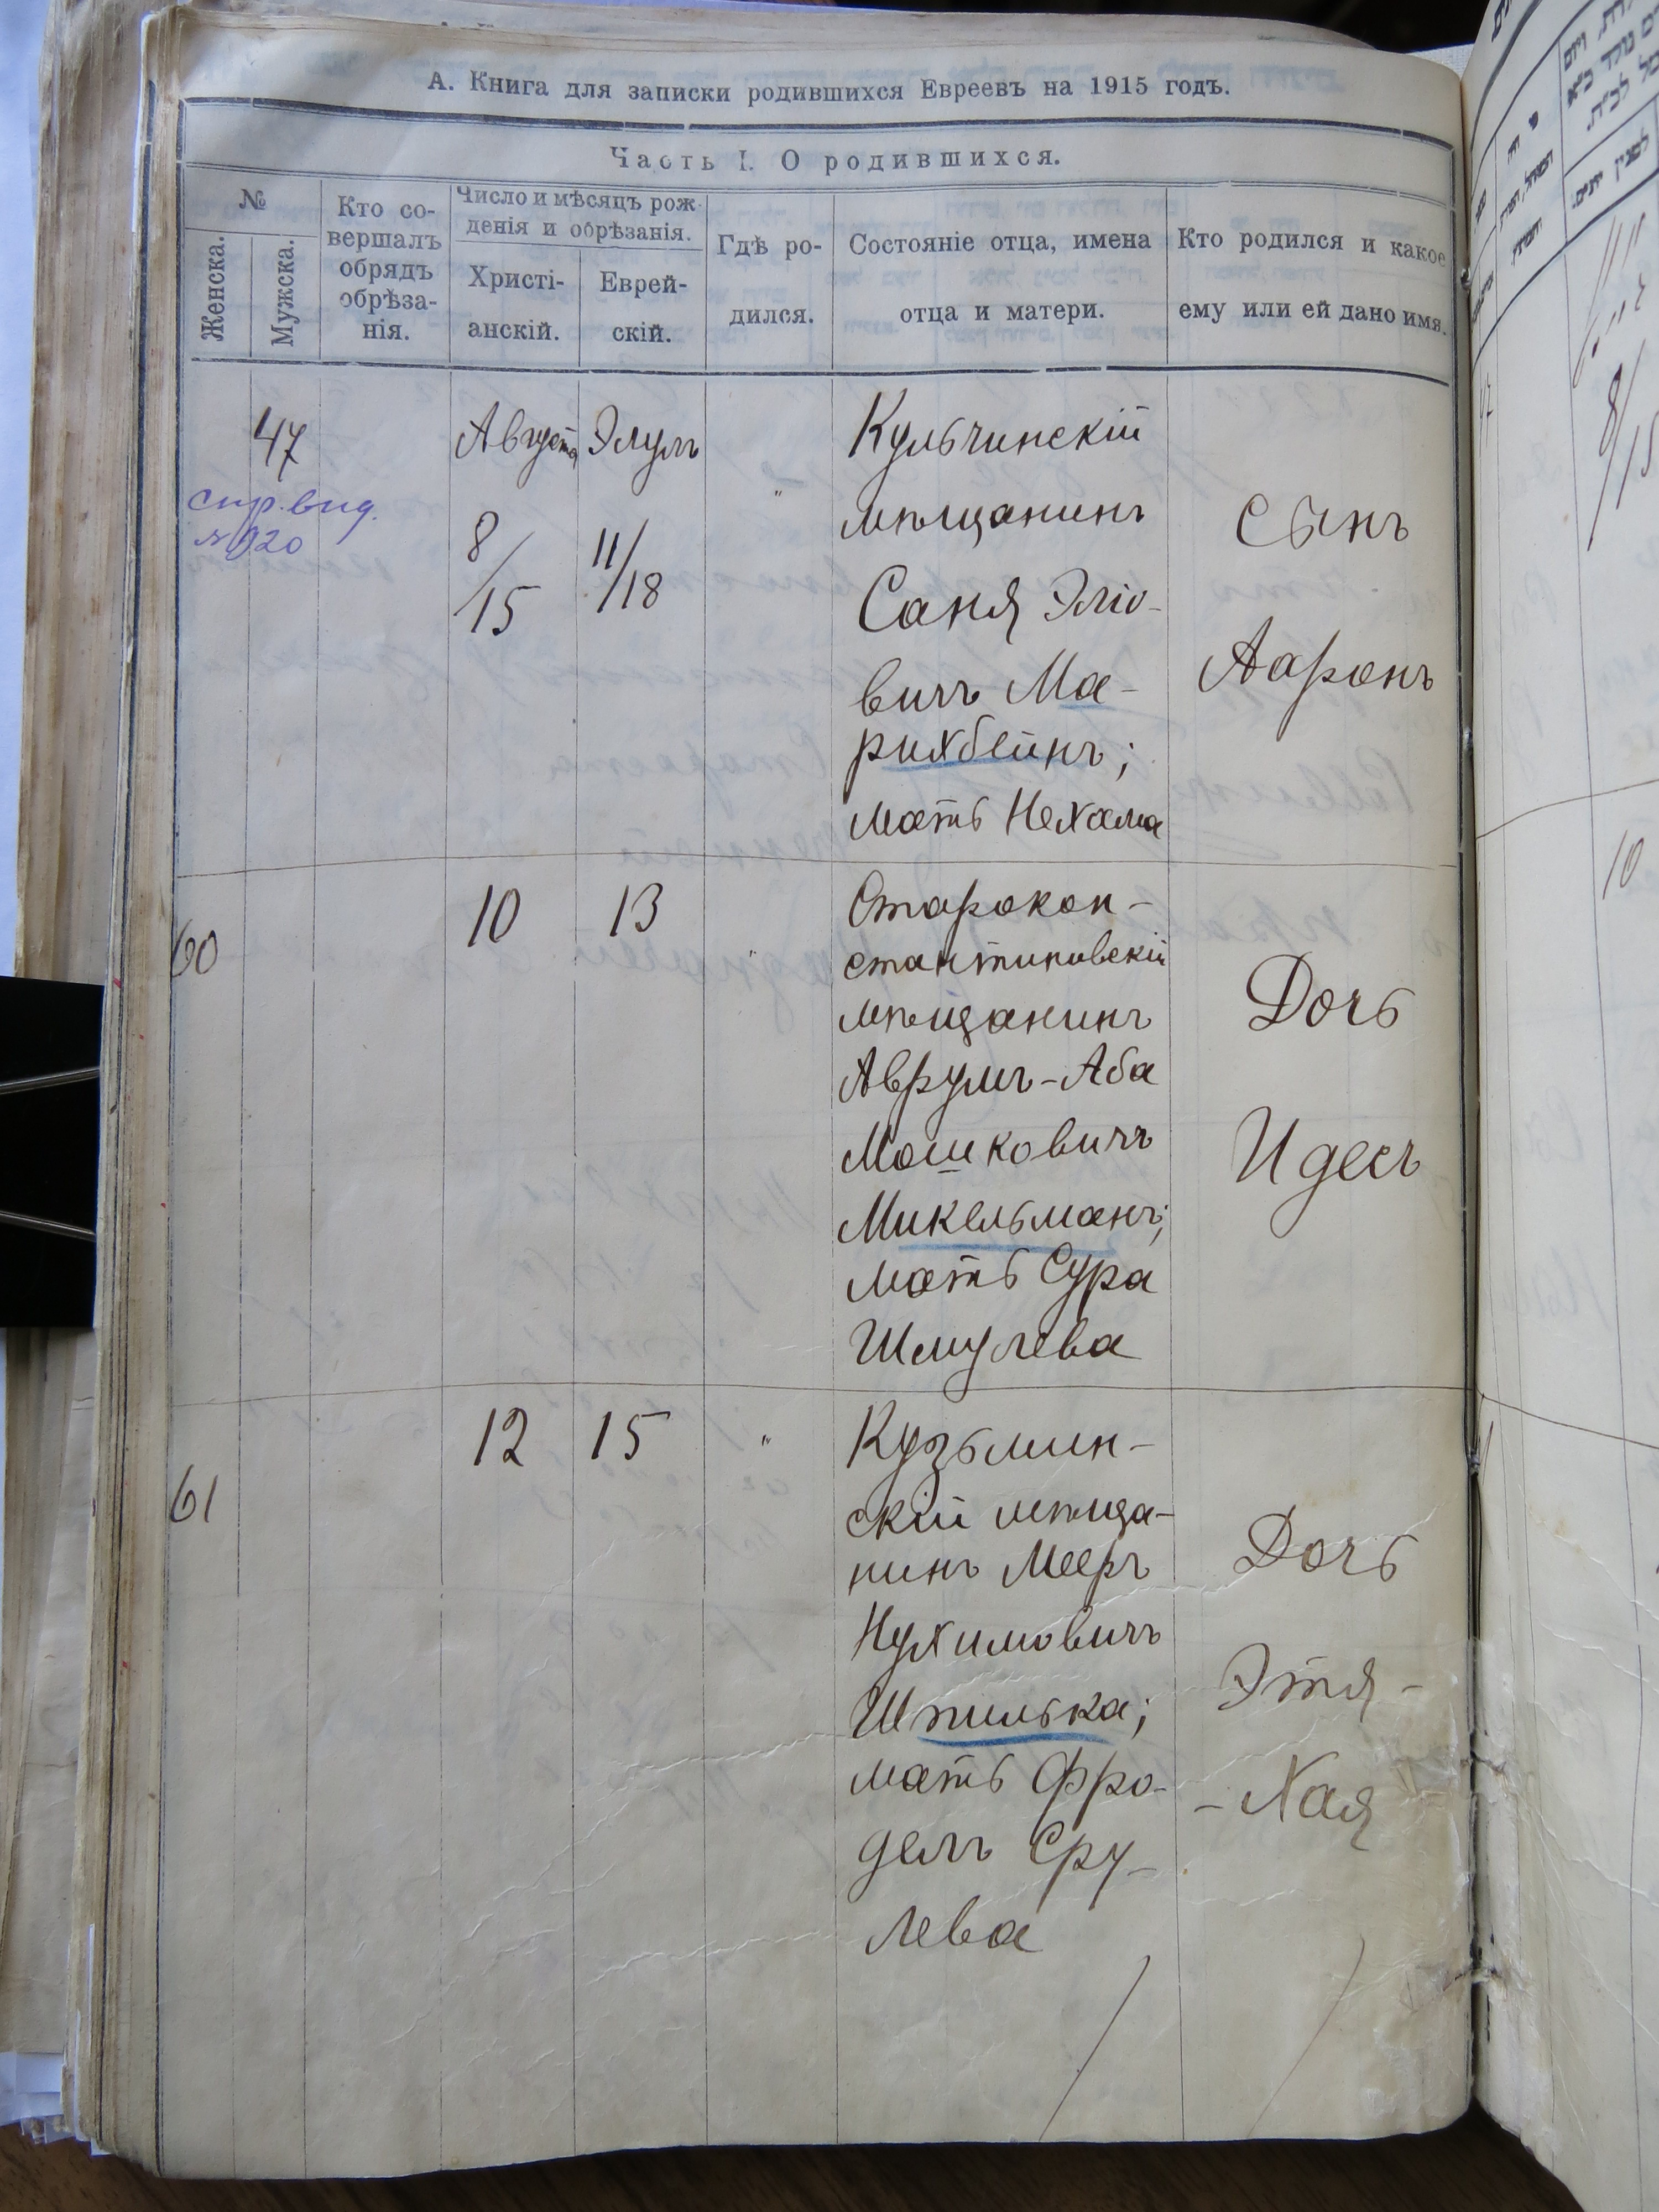 А. Книга для записки родившихся Евреевъ на 1915 годъ.
Часть I. О родившихся.
№
Женска.
Мужска.
Кто со-
вершалъ
обрядъ
обрѣза-
нія.
Число и мѣсяцъ рож-
денія и обрѣзанія.
Христі-
анскій.
Еврей-
скій.
Гдѣ ро-
дился.
Состояніе отца, имена
отца и матери.
Кто родился и какое
ему или ей дано имя.
47
спр. выд.
Августа
8/15
Элулъ
11/18
"
Кульчинскій
мѣщанинъ
Саня Эліо-
вичъ Ма-
рихбейнъ;
мать Нехама
Сынъ
Ааронъ
60
10
13
"
Старокон-
стантиновскій
мѣщанинъ
Аврумъ-Аба
Мошковичъ
Микельманъ;
мать Сура
Шмулева
Дочь
Идесъ
61
12
15
"
Кузьмин-
скій мѣща-
нинъ Мееръ
Нухимовичъ
Шпилька;
мать Фро-
делъ Сру-
лева
Дочь
Этя-
-Хая